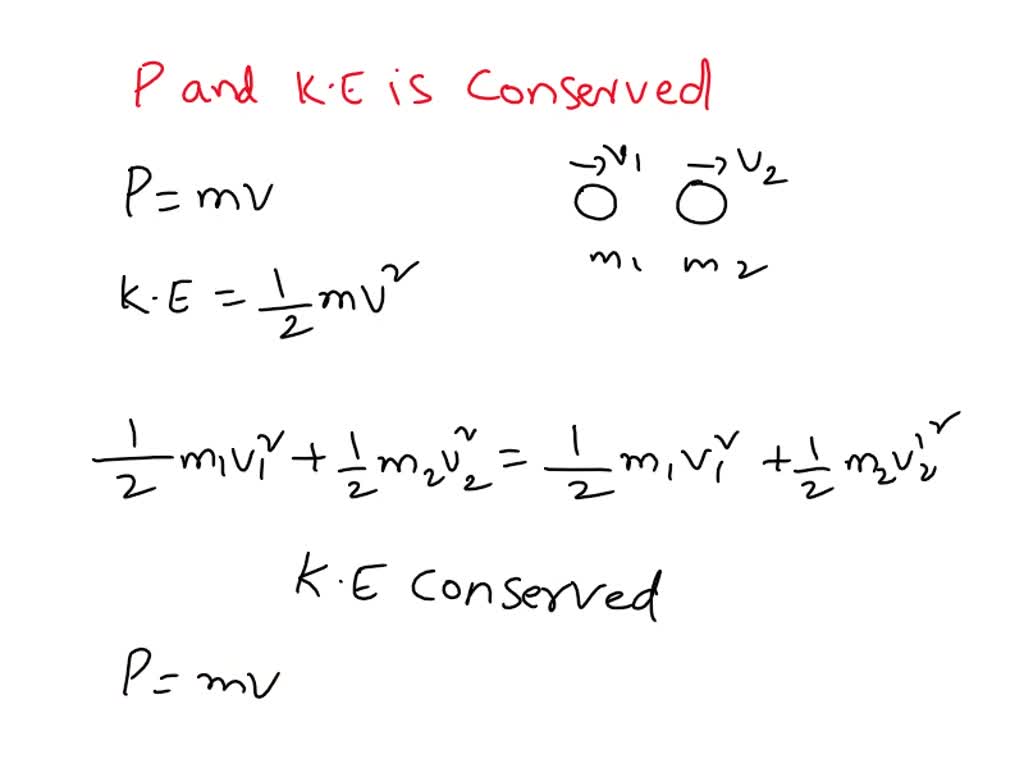 P and K.E is Conserved
P = mv
→v₁ →v₂
m₁ m₂
K.E = 1/2 mv²
1/2 m₁v₁² + 1/2 m₂v₂² = 1/2 m₁v₁² + 1/2 m₂v₂'²
K.E Conserved
P = mv